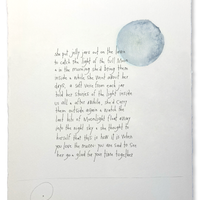 she put jelly jars out on the lawn
to catch the light of the full moon
& in the morning she'd bring them
inside & while she went about her
days, a soft voice from each jar
told her stories of the light inside
us all & after awhile, she'd carry
them outside again & watch the
last bits of moonlight float away
into the night sky & she thought to
herself that this is how it is when
you love the moment you are and to
has you glad for your time together